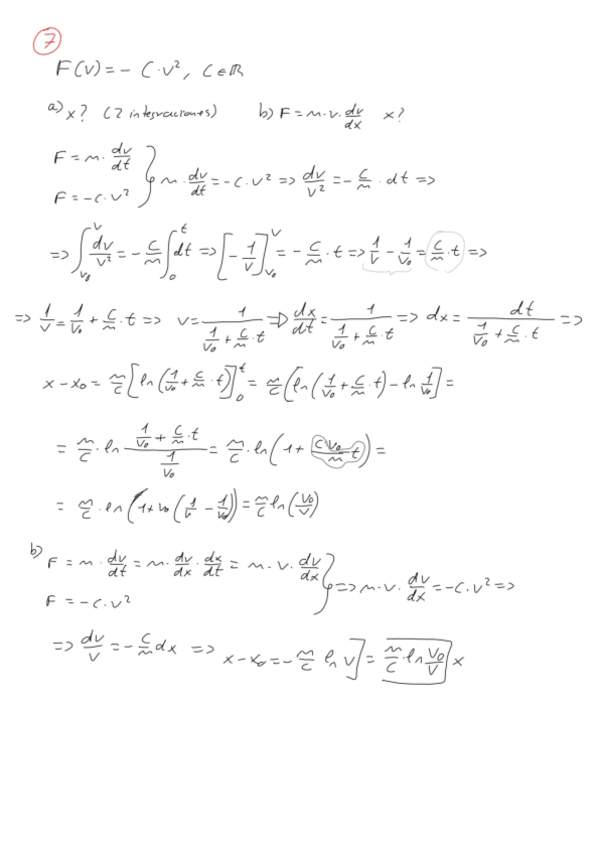 7
F(v) = - C·v², C∈ℝ
a) x? (2 integraciones) b) F = m·v·dv/dx x?
F = m·dv/dt
F = -c·v² } m·dv/dt = -c·v² => dv/v² = -c/m · dt =>
=> ∫_{v₀}^{v} dv/v² = -c/m ∫_0^t dt => [-1/v]_{v₀}^{v} = -c/m · t => 1/v - 1/v₀ = c/m · t =>
=> 1/v = 1/v₀ + c/m · t => v = 1/(1/v₀ + c/m · t) => dx/dt = 1/(1/v₀ + c/m · t) => dx = dt/(1/v₀ + c/m · t) =>
x - x₀ = m/c [ln(1/v₀ + c/m · t)]_0^t = m/c (ln(1/v₀ + c/m · t) - ln 1/v₀] =
= m/c · ln (1/v₀ + c/m · t)/(1/v₀) = m/c · ln(1 + c v₀/m t) =
= m/c · ln(1 + v₀(1/v - 1/v₀)) = m/c ln(v₀/v)
b) F = m·dv/dt = m·dv/dx·dx/dt = m·v·dv/dx
F = -c·v² } => m·v·dv/dx = -c·v² =>
=> dv/v = -c/m dx => x - x₀ = -m/c ln v] = m/c · ln v₀/v x